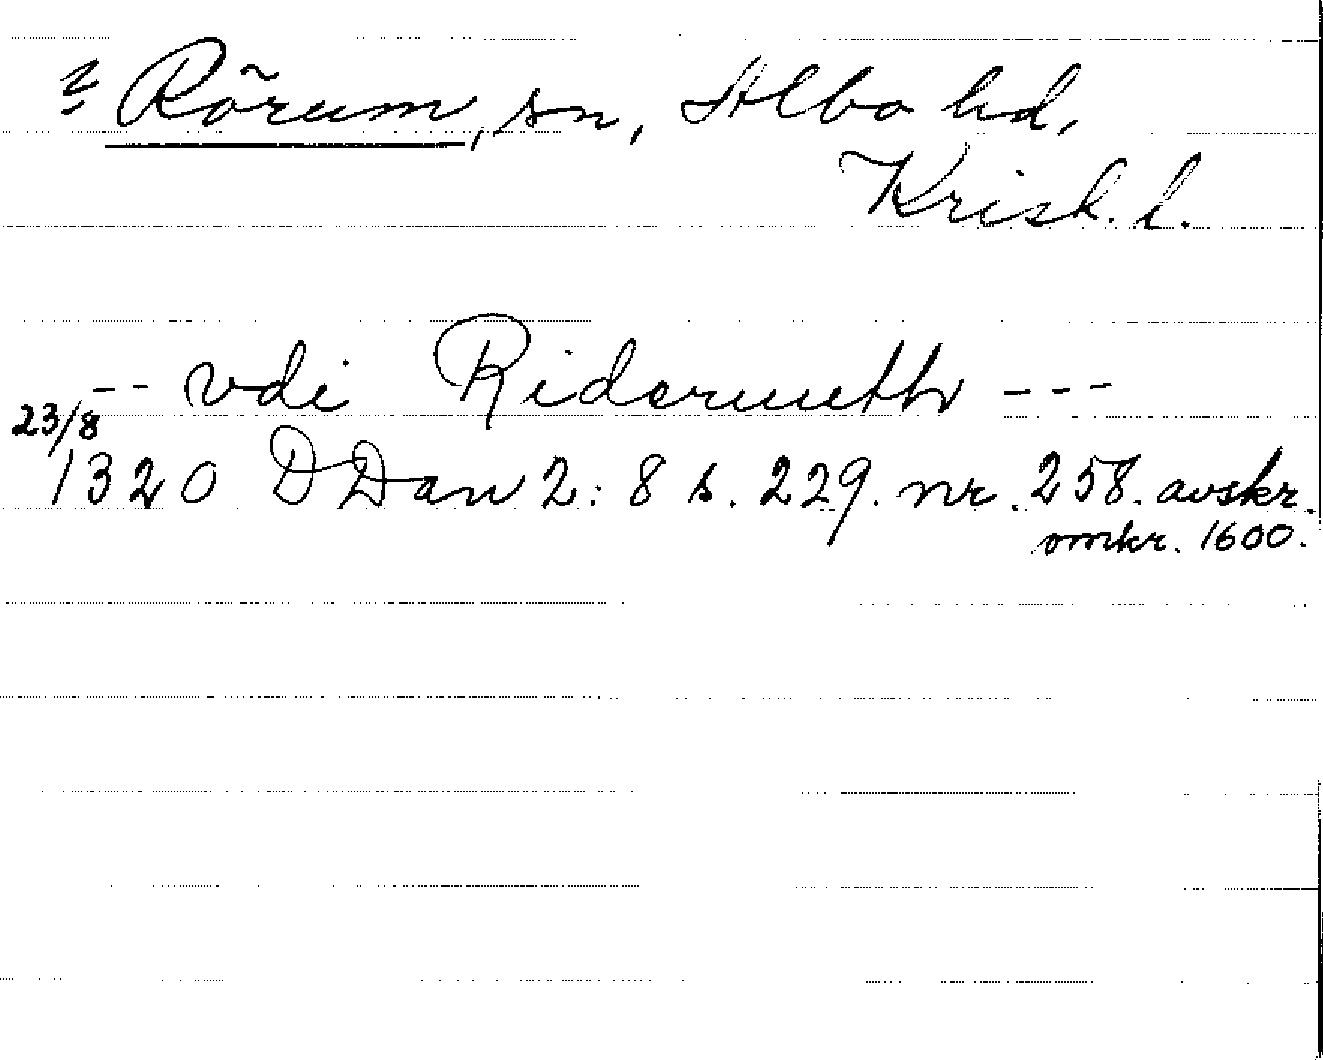 ? Rörum, sn, Albo hd,
Krist. l.
-- vdi Ridermeth ---
23/8
1320 DDan 2: 8 s. 229. nr. 258. avskr.
omkr. 1600.